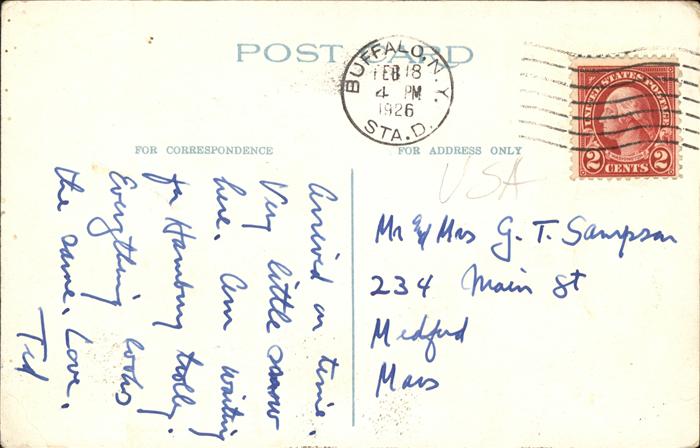 POST CARD
BUFFALO, N.Y.
FEB 18
4 PM
1926
STA. D.
UNITED STATES POSTAGE
WASHINGTON
2 CENTS 2
FOR CORRESPONDENCE
FOR ADDRESS ONLY
USA
Arrived on time.
Very little snow
here. Am waiting
for Hamburg trolley.
Everything looks
the same. Love,
Ted
Mr & Mrs G. T. Sampson
234 Main St
Medford
Mass